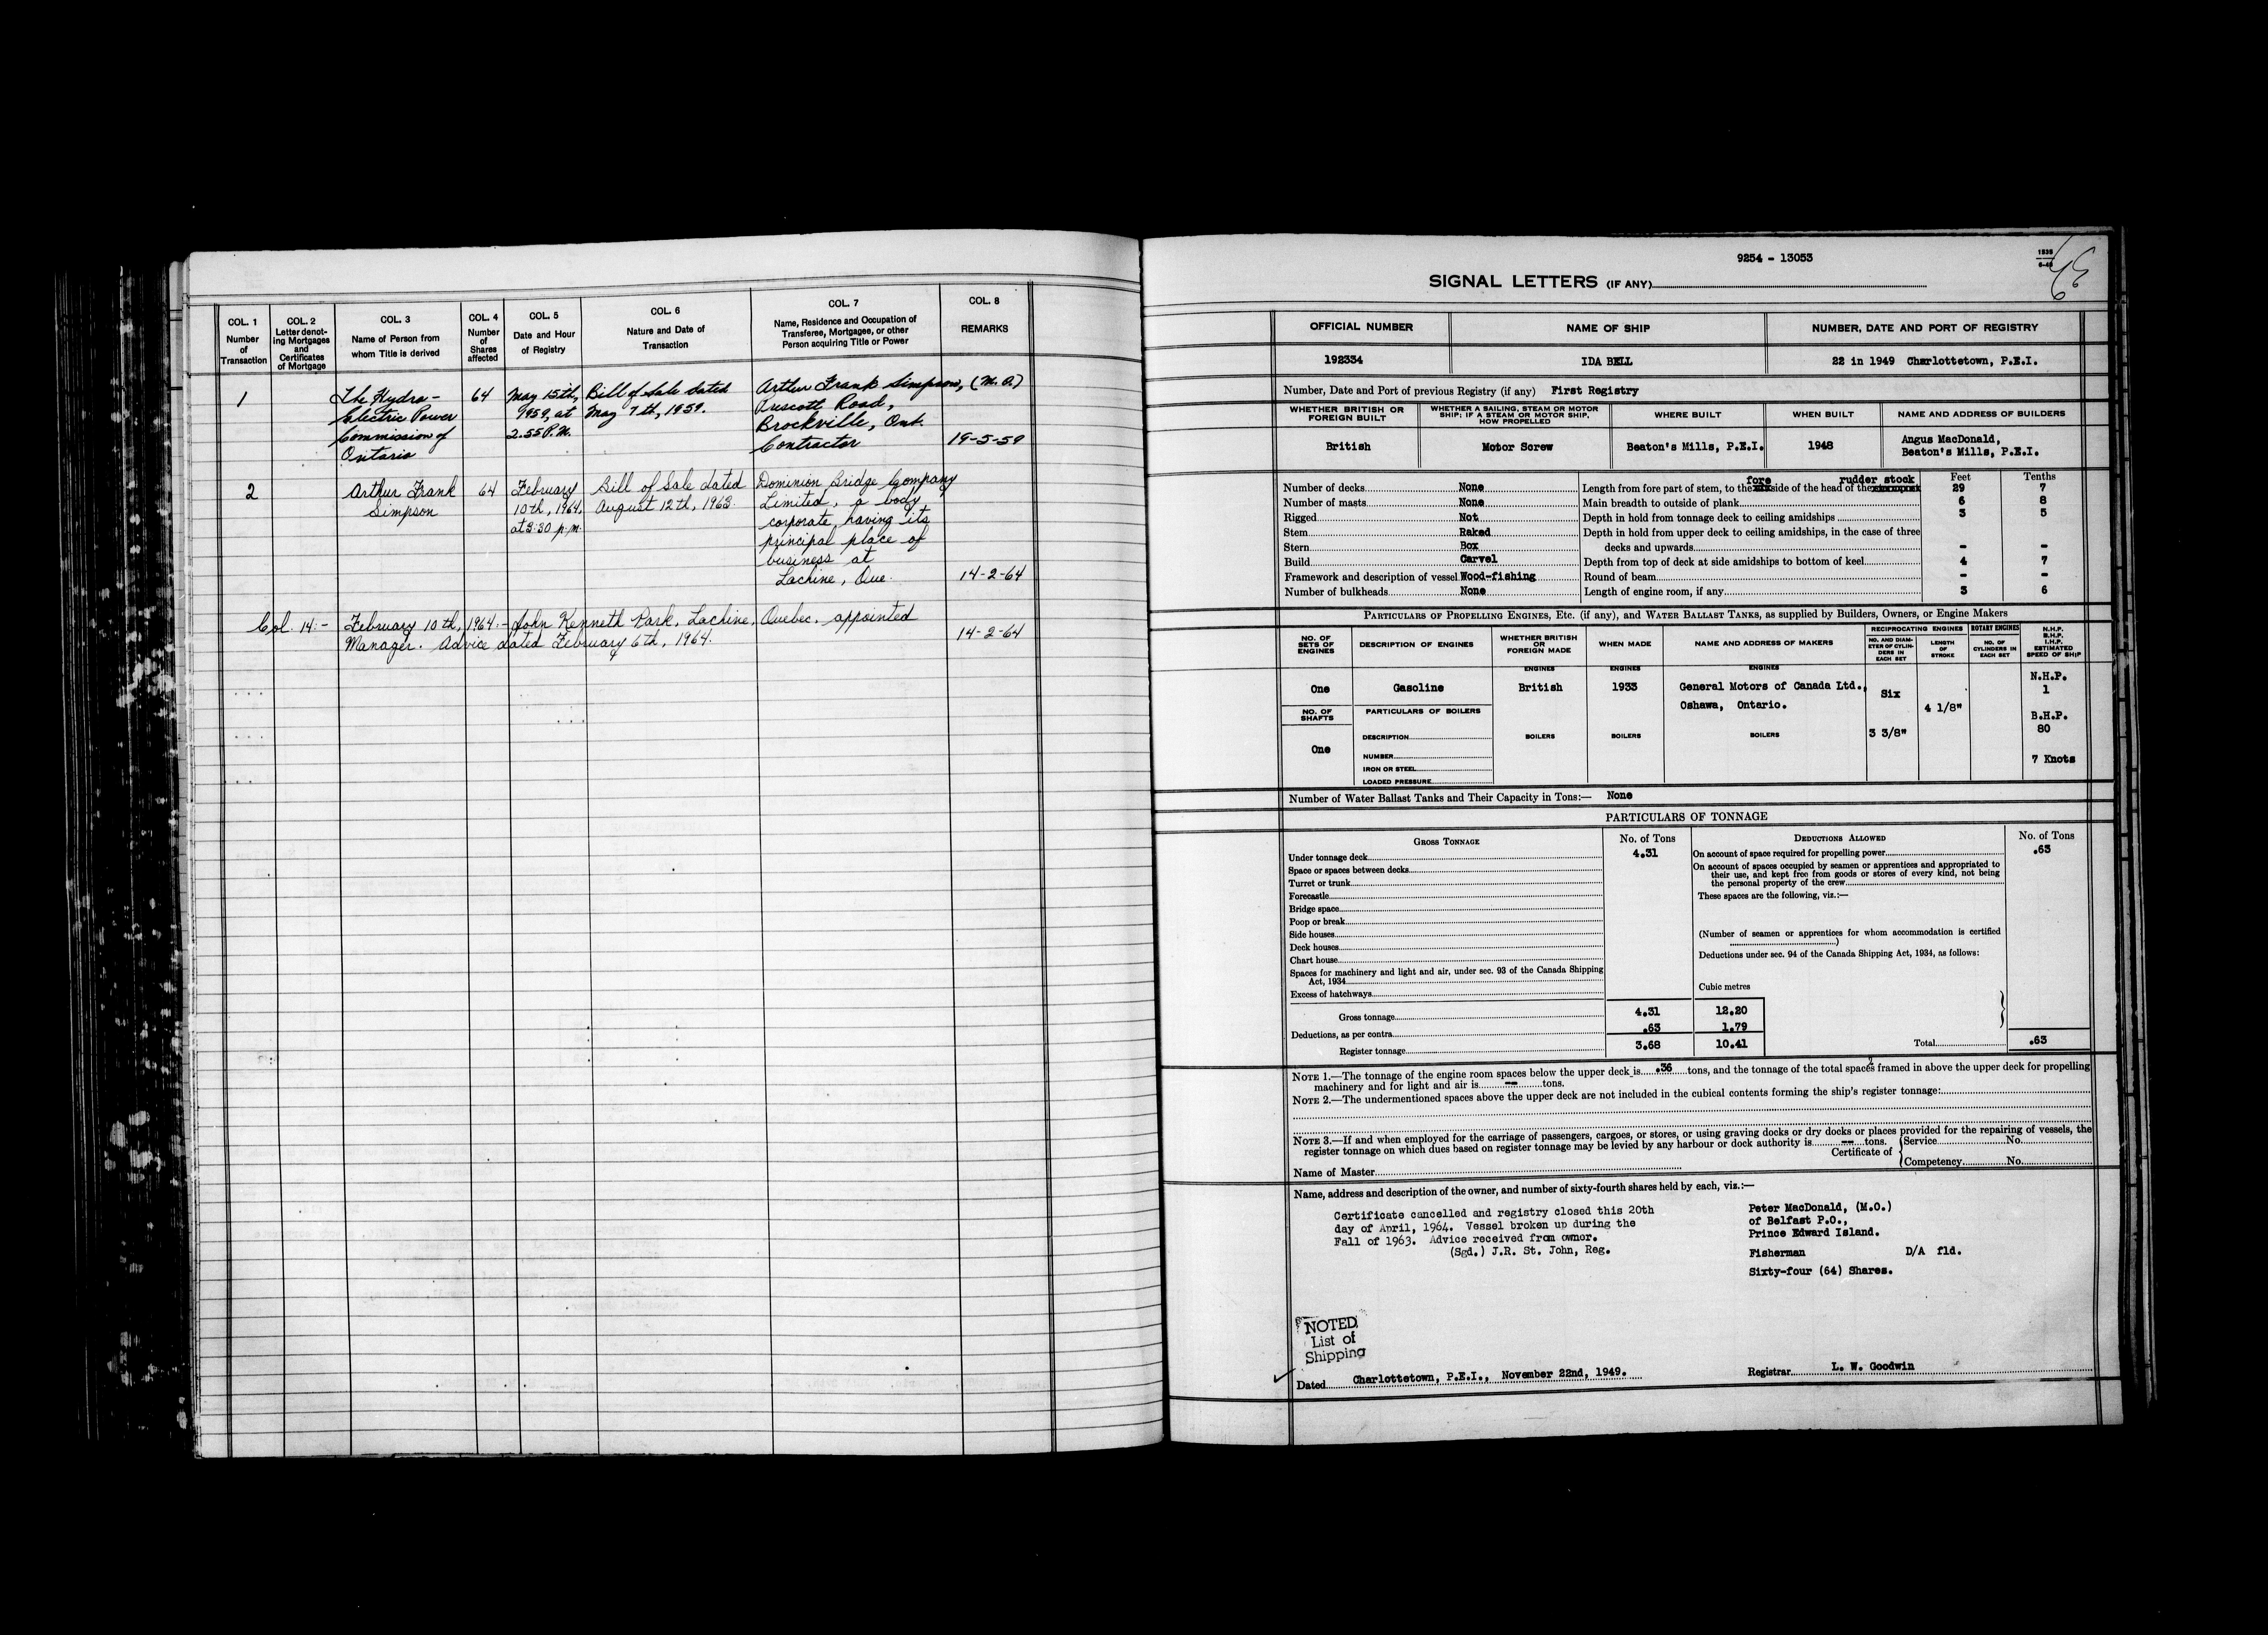 COL. 1
Number
of
Transaction
COL. 2
Letter denot-
ing Mortgages
and
Certificates
of Mortgage
COL. 3
Name of Person from
whom Title is derived
COL. 4
Number
of
Shares
affected
COL. 5
Date and Hour
of Registry
COL. 6
Nature and Date of
Transaction
COL. 7
Name, Residence and Occupation of
Transferee, Mortgagee, or other
Person acquiring Title or Power
COL. 8
REMARKS
1
The Hydro-
Electric Power
Commission of
Ontario
64
May 15th,
1959, at
2.55 P.M.
Bill of Sale dated
May 7th, 1959.
Arthur Frank Simpson, (M.O.)
Prescott Road,
Brockville, Ont.
Contractor
19-5-59
2
Arthur Frank
Simpson
64
February
10th, 1964,
at 3:30 p.m.
Bill of Sale dated
August 12th, 1963.
Dominion Bridge Company
Limited, a body
corporate, having its
principal place of
business at
Lachine, Que.
14-2-64
Col. 14:- February 10th, 1964:- John Kenneth Park, Lachine, Quebec, appointed
Manager. Advice dated February 6th, 1964.
14-2-64
9254 - 13053
SIGNAL LETTERS (IF ANY)
OFFICIAL NUMBER
NAME OF SHIP
NUMBER, DATE AND PORT OF REGISTRY
192334
IDA BELL
22 in 1949 Charlottetown, P.E.I.
Number, Date and Port of previous Registry (if any) First Registry
WHETHER BRITISH OR
FOREIGN BUILT
WHETHER A SAILING, STEAM OR MOTOR
SHIP; IF A STEAM OR MOTOR SHIP,
HOW PROPELLED
WHERE BUILT
WHEN BUILT
NAME AND ADDRESS OF BUILDERS
British
Motor Screw
Beaton's Mills, P.E.I.
1948
Angus MacDonald,
Beaton's Mills, P.E.I.
Number of decks None
Number of masts None
Rigged Not
Stem Raked
Stern Box
Build Carvel
Framework and description of vessel Wood-fishing
Number of bulkheads None
Feet Tenths
fore rudder stock
Length from fore part of stem, to the side of the head of the 29 7
Main breadth to outside of plank 6 8
Depth in hold from tonnage deck to ceiling amidships 3 5
Depth in hold from upper deck to ceiling amidships, in the case of three
decks and upwards - -
Depth from top of deck at side amidships to bottom of keel 4 7
Round of beam - -
Length of engine room, if any 3 6
PARTICULARS OF PROPELLING ENGINES, ETC. (if any), and WATER BALLAST TANKS, as supplied by Builders, Owners, or Engine Makers
NO. OF
SETS OF
ENGINES
DESCRIPTION OF ENGINES
WHETHER BRITISH
OR
FOREIGN MADE
WHEN MADE
NAME AND ADDRESS OF MAKERS
RECIPROCATING ENGINES
NO. AND DIAM-
ETER OF CYLIN-
DERS IN
EACH SET
LENGTH
OF
STROKE
ROTARY ENGINES
NO. OF
CYLINDERS IN
EACH SET
N.H.P.
B.H.P.
I.H.P.
ESTIMATED
SPEED OF SHIP
ENGINES
ENGINES
ENGINES
One
Gasoline
British
1933
General Motors of Canada Ltd.,
Oshawa, Ontario.
Six
3 3/8"
4 1/8"
N.H.P.
1
B.H.P.
80
7 Knots
NO. OF
SHAFTS
One
PARTICULARS OF BOILERS
DESCRIPTION
NUMBER
IRON OR STEEL
LOADED PRESSURE
BOILERS
BOILERS
BOILERS
Number of Water Ballast Tanks and Their Capacity in Tons:— None
PARTICULARS OF TONNAGE
GROSS TONNAGE
No. of Tons
Under tonnage deck 4.31
Space or spaces between decks
Turret or trunk
Forecastle
Bridge space
Poop or break
Side houses
Deck houses
Chart house
Spaces for machinery and light and air, under sec. 93 of the Canada Shipping
Act, 1934
Excess of hatchways
Cubic metres
Gross tonnage 4.31 12.20
Deductions, as per contra .63 1.79
Register tonnage 3.68 10.41
DEDUCTIONS ALLOWED
No. of Tons
On account of space required for propelling power .63
On account of spaces occupied by seamen or apprentices and appropriated to
their use, and kept free from goods or stores of every kind, not being
the personal property of the crew
These spaces are the following, viz.:—
(Number of seamen or apprentices for whom accommodation is certified
)
Deductions under sec. 94 of the Canada Shipping Act, 1934, as follows:
Total .63
NOTE 1.—The tonnage of the engine room spaces below the upper deck is .36 tons, and the tonnage of the total spaces framed in above the upper deck for propelling
machinery and for light and air is -- tons.
NOTE 2.—The undermentioned spaces above the upper deck are not included in the cubical contents forming the ship's register tonnage:
NOTE 3.—If and when employed for the carriage of passengers, cargoes, or stores, or using graving docks or dry docks or places provided for the repairing of vessels, the
register tonnage on which dues based on register tonnage may be levied by any harbour or dock authority is -- tons.
Certificate of
Service No.
Competency No.
Name of Master
Name, address and description of the owner, and number of sixty-fourth shares held by each, viz.:—
Certificate cancelled and registry closed this 20th
day of April, 1964. Vessel broken up during the
Fall of 1963. Advice received from owner.
(Sgd.) J.R. St. John, Reg.
Peter MacDonald, (M.O.)
of Belfast P.O.,
Prince Edward Island.
Fisherman D/A fld.
Sixty-four (64) Shares.
NOTED
List of
Shipping
Dated Charlottetown, P.E.I., November 22nd, 1949.
Registrar L. W. Goodwin